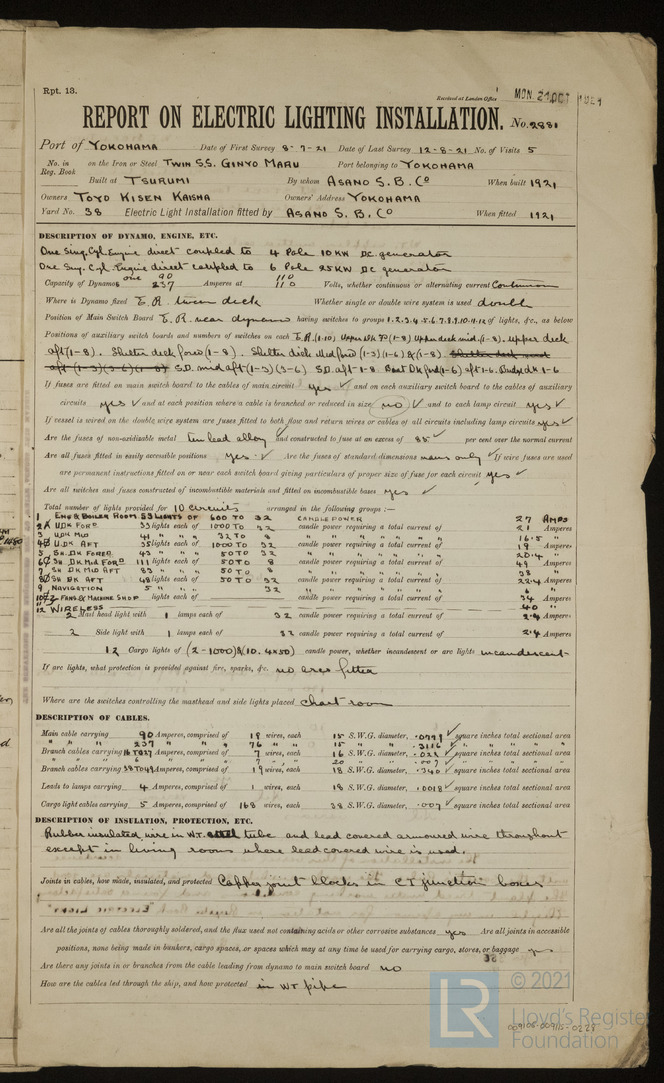 Rpt. 13.
Received at London Office MON. 24 OCT 1921
REPORT ON ELECTRIC LIGHTING INSTALLATION. No. 2881
Port of YOKOHAMA Date of First Survey 8-7-21 Date of Last Survey 12-8-21 No. of Visits 5
No. in Reg. Book on the Iron or Steel TWIN S.S. GINYO MARU Port belonging to YOKOHAMA
Built at TSURUMI By whom ASANO S. B. Co When built 1921
Owners TOYO KISEN KAISHA Owners' Address YOKOHAMA
Yard No. 38 Electric Light Installation fitted by ASANO S. B. Co When fitted 1921
DESCRIPTION OF DYNAMO, ENGINE, ETC.
One Sing. Cyl. Engine direct coupled to 4 Pole 10 KW DC. generator
One Sing. Cyl. Engine direct coupled to 6 Pole 25 KW DC generator
Capacity of Dynamos one 90 237 Amperes at 110 110 Volts, whether continuous or alternating current Continuous
Where is Dynamo fixed E. R. tween deck Whether single or double wire system is used double
Position of Main Switch Board E. R. near dynamo having switches to groups 1.2.3.4.5.6.7.8.9.10.11.12 of lights, &c., as below
Positions of auxiliary switch boards and numbers of switches on each E.R.(1-10) Upper dk (1-8) Upper deck mid.(1-8). upper deck
aft (1-8). Shelter deck ford (1-8). Shelter deck Mid ford (1-3)(1-6) & (1-8).
S.D. mid aft (1-3)(3-6) S.D. aft 1-8 Boat Dk ford (1-6) aft 1-6. Bridge dk 1-6
If fuses are fitted on main switch board to the cables of main circuit yes ✓ and on each auxiliary switch board to the cables of auxiliary
circuits yes ✓ and at each position where a cable is branched or reduced in size no ✓ and to each lamp circuit yes ✓
If vessel is wired on the double wire system are fuses fitted to both flow and return wires or cables of all circuits including lamp circuits yes ✓
Are the fuses of non-oxidizable metal tin lead alloy and constructed to fuse at an excess of 85 ✓ per cent over the normal current
Are all fuses fitted in easily accessible positions yes ✓ Are the fuses of standard dimensions mains only ✓ If wire fuses are used
are permanent instructions fitted on or near each switch board giving particulars of proper size of fuse for each circuit yes ✓
Are all switches and fuses constructed of incombustible materials and fitted on incombustible bases yes ✓
Total number of lights provided for 10 circuits arranged in the following groups :—
1 ENG & BOILER ROOM 53 LIGHTS OF 600 TO 32 CANDLE POWER 27 AMPS
2 U.DK FORE 33 lights each of 1000 TO 32 candle power requiring a total current of 21 Amperes
3 U.DK MID 41 " " " 32 TO 8 " " " " " " 16.5 "
4 U.DK AFT 35 lights each of 1000 TO 32 candle power requiring a total current of 19 Amperes
5 SH. DK FORED 43 " " " 50 TO 32 " " " " " " 20.4 "
6 SH. DK MID FORD 111 lights each of 50 TO 8 candle power requiring a total current of 49 Amperes
7 SH DK MID AFT 83 " " " 50 TO 8 " " " " " " 38 "
8 SH DK AFT 48 lights each of 50 TO 32 candle power requiring a total current of 22.4 Amperes
9 NAVIGATION 5 " " " 32 " " " " " " 6 "
10 FANS & MACHINE SHOP lights each of candle power requiring a total current of 34 Amperes
12 WIRELESS 40 "
2 Mast head light with 1 lamps each of 32 candle power requiring a total current of 2.4 Amperes
2 Side light with 1 lamps each of 32 candle power requiring a total current of 2.4 Amperes
12 Cargo lights of (2-1000) & (10. 4x50) candle power, whether incandescent or arc lights incandescent
If arc lights, what protection is provided against fire, sparks, &c. no arcs fitted
Where are the switches controlling the masthead and side lights placed chart room
DESCRIPTION OF CABLES.
Main cable carrying 90 Amperes, comprised of 19 wires, each 15 S.W.G. diameter, .0779 ✓ square inches total sectional area
" " " 237 " " " 76 " " 15 " " .3116 ✓ " " " "
Branch cables carrying 16 TO 27 Amperes, comprised of 7 wires, each 16 S.W.G. diameter, .022 ✓ square inches total sectional area
" " " 6 " " " 7 " " 20 " " .007 ✓ " " " "
Branch cables carrying 38 TO 49 Amperes, comprised of 19 wires, each 18 S.W.G. diameter, .340 ✓ square inches total sectional area
Leads to lamps carrying 4 Amperes, comprised of 1 wires, each 18 S.W.G. diameter, .0018 ✓ square inches total sectional area
Cargo light cables carrying 5 Amperes, comprised of 168 wires, each 38 S.W.G. diameter, .007 ✓ square inches total sectional area
DESCRIPTION OF INSULATION, PROTECTION, ETC.
Rubber insulated wire in W.T. steel tube and lead covered armoured wire throughout
except in living rooms where lead covered wire is used.
Joints in cables, how made, insulated, and protected Copper joint blocks in C.I. junction boxes
Are all the joints of cables thoroughly soldered, and the flux used not containing acids or other corrosive substances yes Are all joints in accessible
positions, none being made in bunkers, cargo spaces, or spaces which may at any time be used for carrying cargo, stores, or baggage yes
Are there any joints in or branches from the cable leading from dynamo to main switch board no
How are the cables led through the ship, and how protected in W.T. pipe
© 2021
LR Lloyd's Register
Foundation
009105-009115-0228